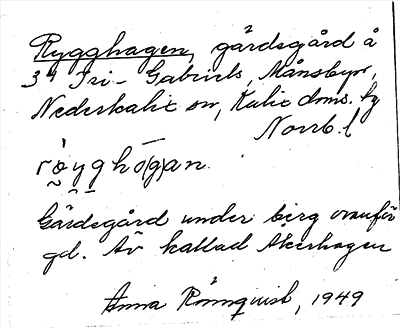 Rygghagen, gärdsgård å
3⁴ Isi-Gabriels, Månsbyn,
Nederkalix sn, Kalix doms. tg
Norrb. l
røyghó(g)an
Gärdsgård under berg ovanför
gd. Äv kallad Åkerhagen
Anna Rönnquist, 1949